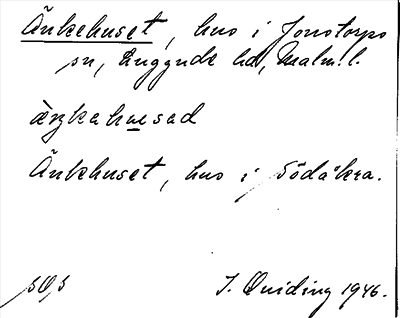 Änkehuset, hus i Jonstorps
sn, Luggude hd, Malm. l.
àŋkahu̲sad
Änkehuset, hus i Södåkra.
50,5
J. Quiding 1946.